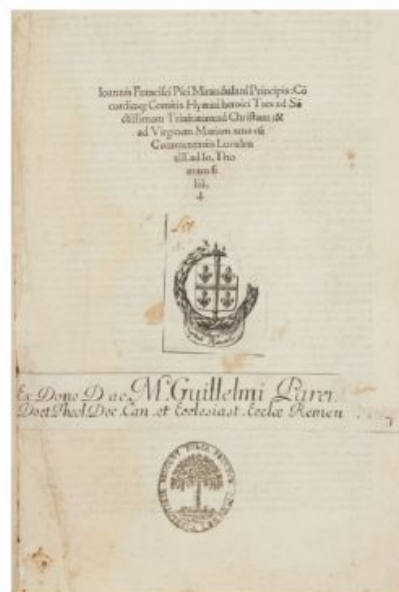 Ioannis Francisci Pici Mirandulani Principis: Cō
cordiæq; Comitis Hymni heroici Tres ad Sā
ctissimam Trinitatem: ad Christum: &
ad Virginem Mariam una cū
Commentariis Luculen
tiss. ad Io. Tho
mam fi
liū.
Ex Dono D ac M. Guillelmi Parer.
Doct Theol. Doc. Can. et Ecclesiast. Eccle Remen